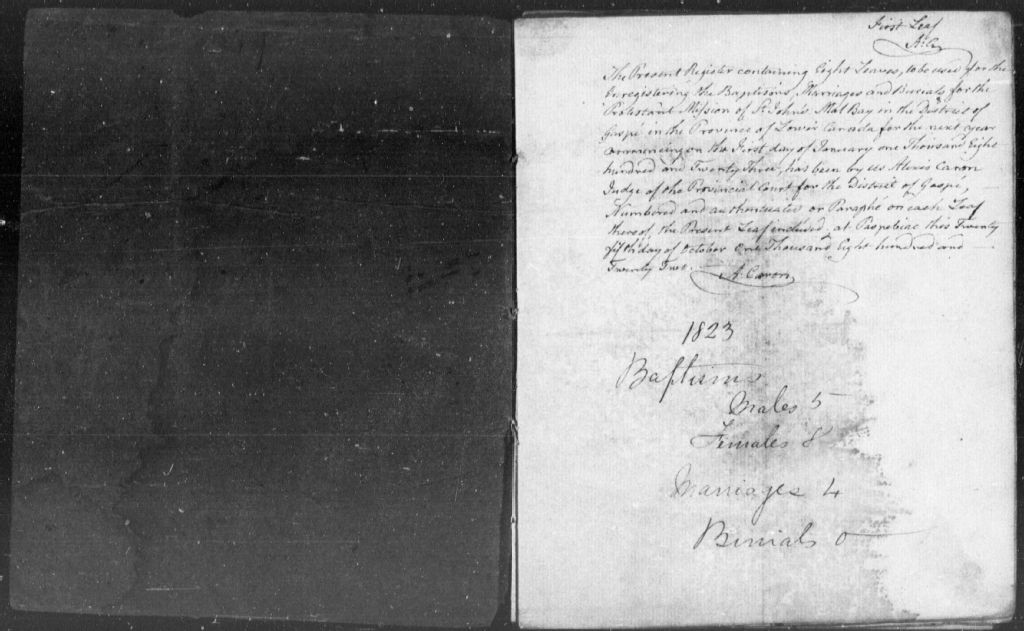 First Leaf
A. C.
The Present Register containing Eight Leaves, to be used for the
Enregistering the Baptisms, Marriages and Burials, for the
Protestant Mission of St. John's Mal Bay in the District of
Gaspé in the Province of Lower Canada for the next year
commencing on the First day of January one Thousand Eight
hundred and Twenty Three, has been by us Alexis Caron
Judge of the Provincial Court for the District of Gaspé,
Numbered and authenticated or Paraphé on each Leaf
thereof, the Present Leaf included, at Paspebiac this Twenty
fifth day of October One Thousand Eight hundred and
Twenty Two. A. Caron
1823
Baptisms
Males 5
Females 8
Marriages 4
Burials 0